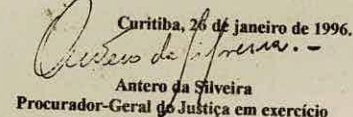 Curitiba, 26 de janeiro de 1996.
Antero da Silveira
Antero da Silveira
Procurador-Geral do Justiça em exercício